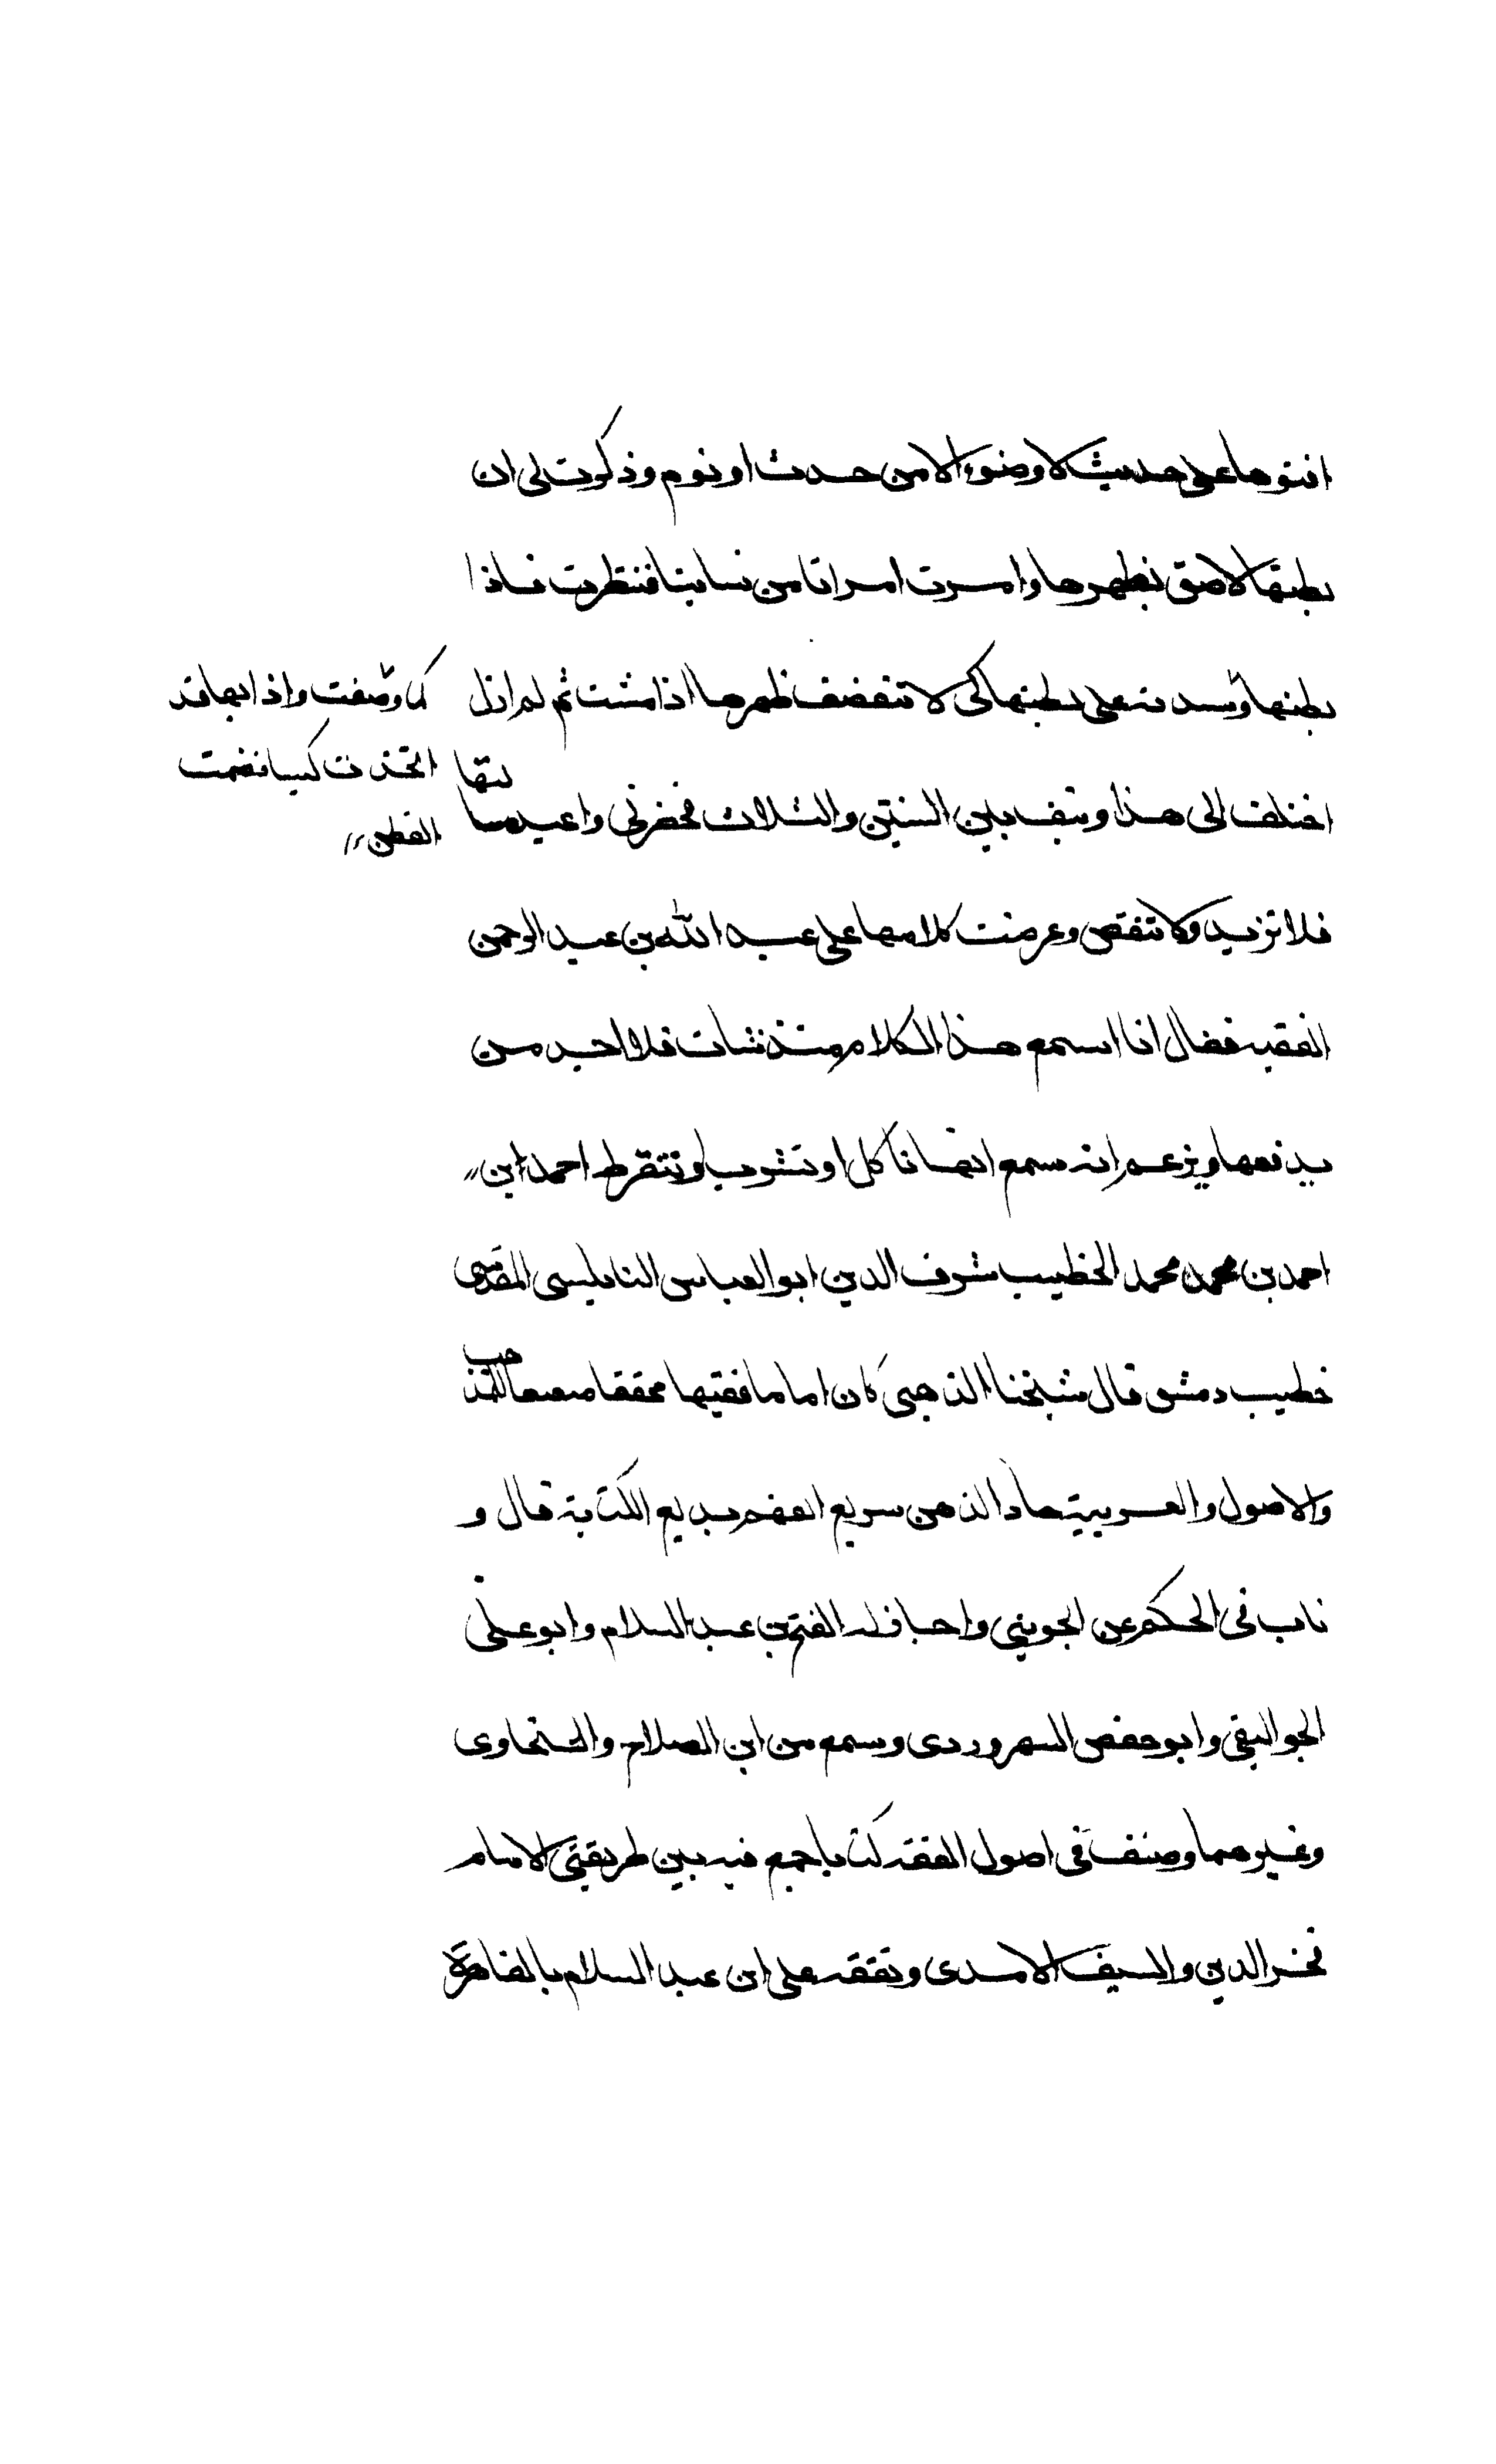 افتوها على حديث لا وضوء الا من حدث او نوم وذكرت لى ان
بطنها لاصق بظهرها وامرت امراتا من نساينا فنظرت فاذا
بطنها وشدته على بطنها كى لا تنقصف ظهرها اذا مشت ثم لم ازل
كما وصفت واذا بها قد
اتخذت كيسا فضمت
القطن
اختلف الى هذا وتيف بين السنتين والثلاث فخضرنى واعيد مسا لتها
فلا تزيد ولا تنقص وعرضت كلامها على عبد الله بن عبد الرحمن
الفقيه فقال انا اسمع هذا الكلام منذ نشات فلا احد من
يدفعها ويزعم انه سمع انها تاكل او تشرب او تتغوط احمد ابن
احمد بن محمد محمد الخطيب شرف الدين ابو العباس النابلسى المقدسى
خطيب دمشق قال شيخنا الذهبى كان اماما فقيها محققا للمذهب
والاصول والعربية حاد الذهن سريع الفهم بديع الكتابة قال و
ناب فى الحكم عن الجوينى واجاز له الفتح بن عبد السلام وابو على
الجواليقى وابو حفص السهروردى وسمع من ابن الصلاح والسخاوى
وغيرهما وصنف فى اصول الفقه كتابا جمع فيه بين طريقتى الامام
فخر الدين والسيف الامدى وتفقه على ابن عبد السلام بالقاهرة